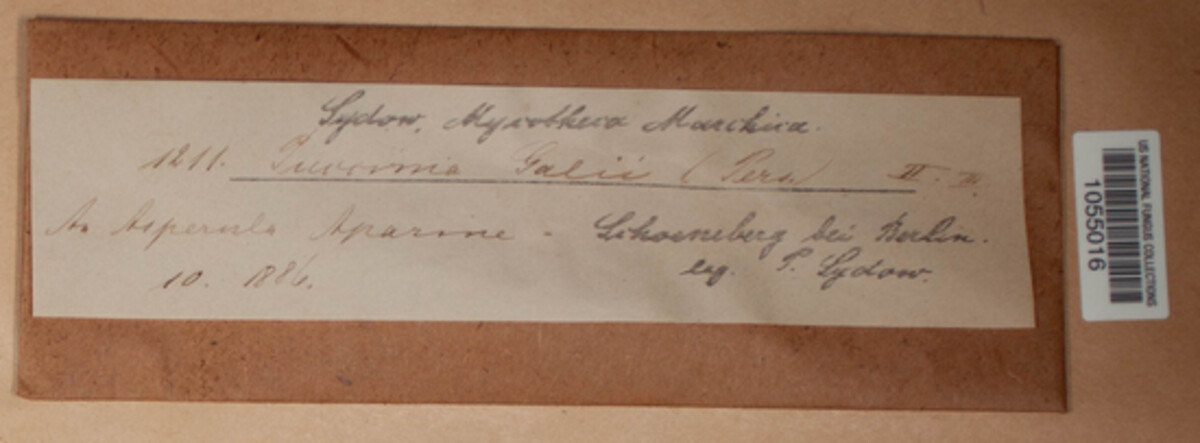 Sydow, Mycotheca Marchica.
1211. Puccinia Galii (Pers.) II. III.
An Asperula Aparine - Schoeneberg bei Berlin.
10. 1886. leg. P. Sydow.
US NATIONAL FUNGUS COLLECTIONS
1055016